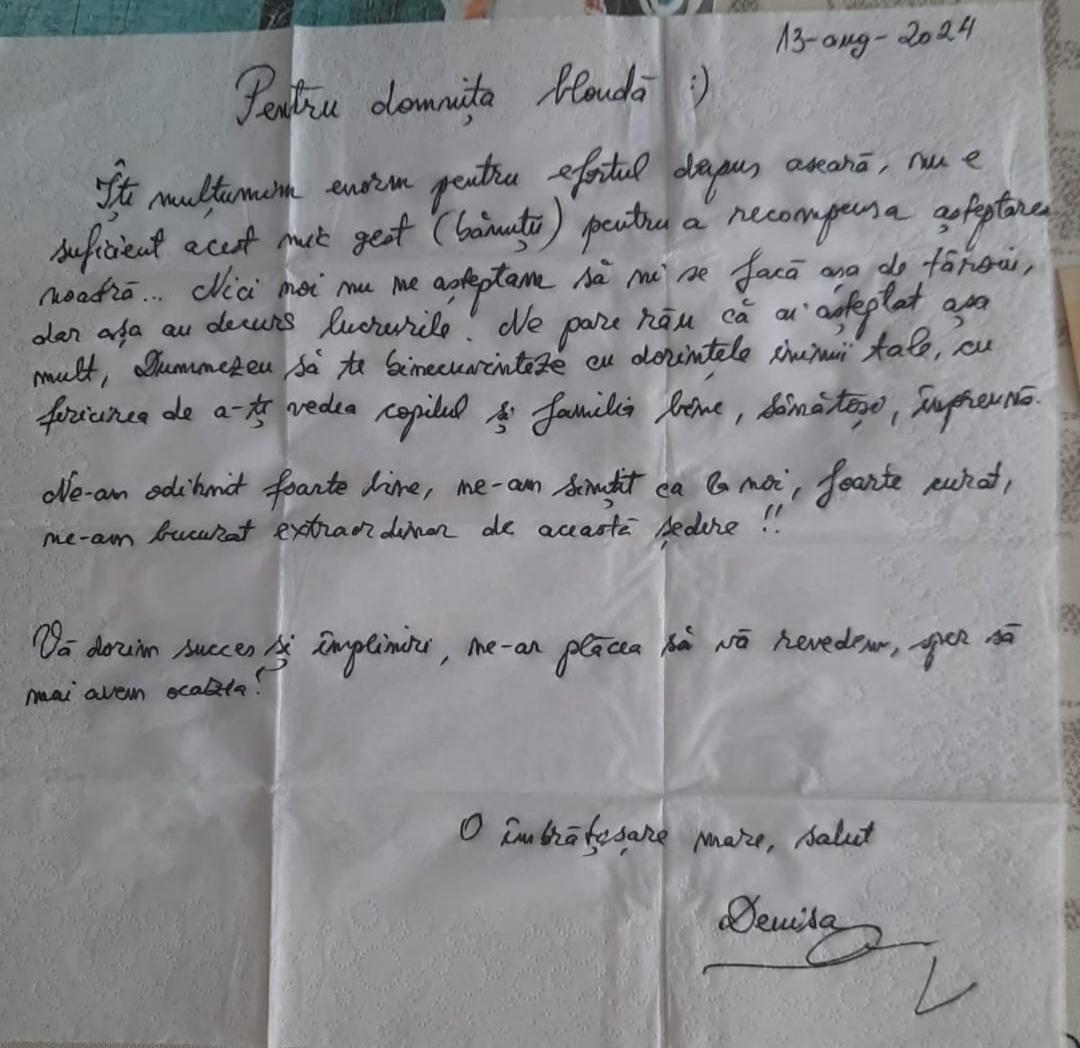 13-aug-2024
Pentru domnița blondă :)
Îți mulțumim enorm pentru efortul depus aseară, nu e
suficient acest mic gest (bănuții) pentru a recompensa așteptarea
noastră... Nici noi nu ne așteptam să ni se facă așa de târziu,
dar așa au decurs lucrurile. Ne pare rău că ai așteptat așa
mult, Dumnezeu să te binecuvinteze cu dorințele inimii tale, cu
fericirea de a-ți vedea copilul și familia bine, sănătoși, împreună.
Ne-am odihnit foarte bine, ne-am simțit ca la noi, foarte curat,
ne-am bucurat extraordinar de această ședere!!
Vă dorim succes și împliniri, ne-ar plăcea să vă revedem, sper să
mai avem ocazia!
O îmbrățișare mare, salut
Denisa